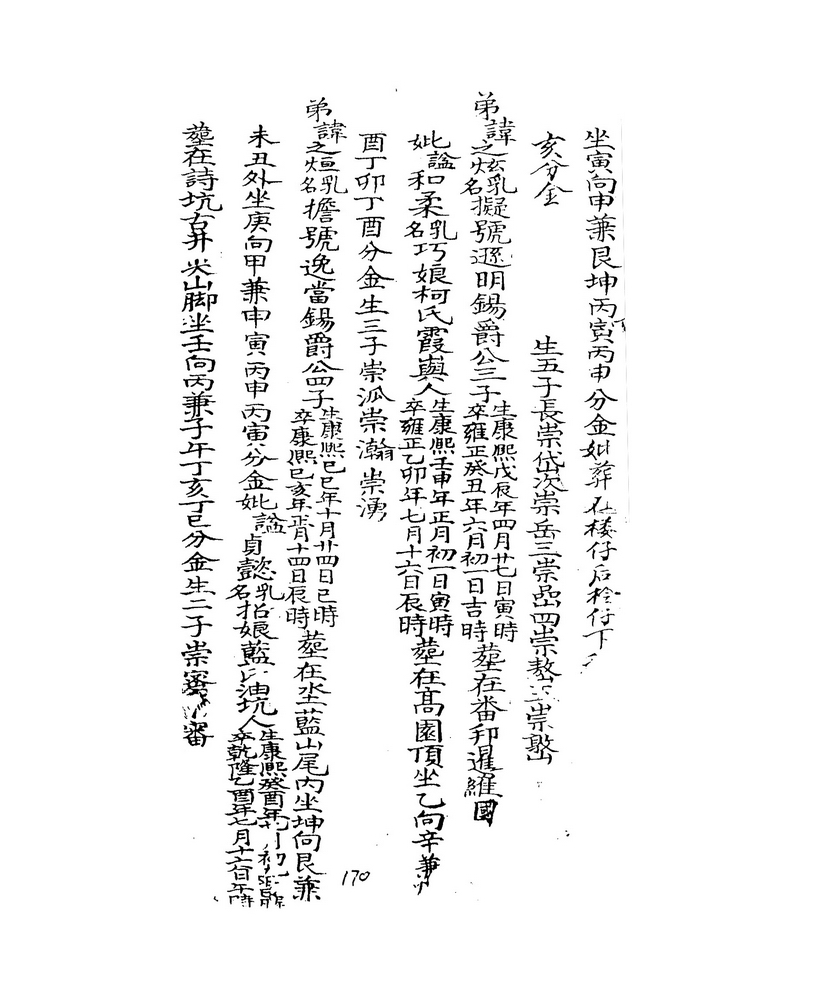 坐寅向申兼艮坤丙寅丙申分金妣葬在楼仔后栓仔下
亥分金
生五子長崇岱次崇岳三崇嵒四崇嶅五崇
弟諱之炫乳名擬號遜明錫爵公三子生康熙戊辰年四月廿七日寅時卒雍正癸丑年六月初一日吉時塟在番邦暹羅國
妣謚和柔乳名巧娘柯氏霞嶼人生康熙壬申年正月初一日寅時卒雍正乙卯年七月十六日辰時塟在高園頂坐乙向辛兼卯
酉丁卯丁酉分金生三子崇泒崇瀚崇湧
弟諱之烜乳名擔號逸當錫爵公四子生康熙己巳年十月廿四日巳時卒康熙己亥年正月十四日辰時塟在坐藍山尾内坐坤向艮兼
未丑外坐庚向甲兼申寅丙申丙寅分金妣謚貞懿乳名招娘藍氏油坑人生康熙癸酉年卒乾隆乙酉年七月十六日午時
塟在詩坑古井尖山脚坐壬向丙兼子午丁亥丁巳分金生二子崇審
170